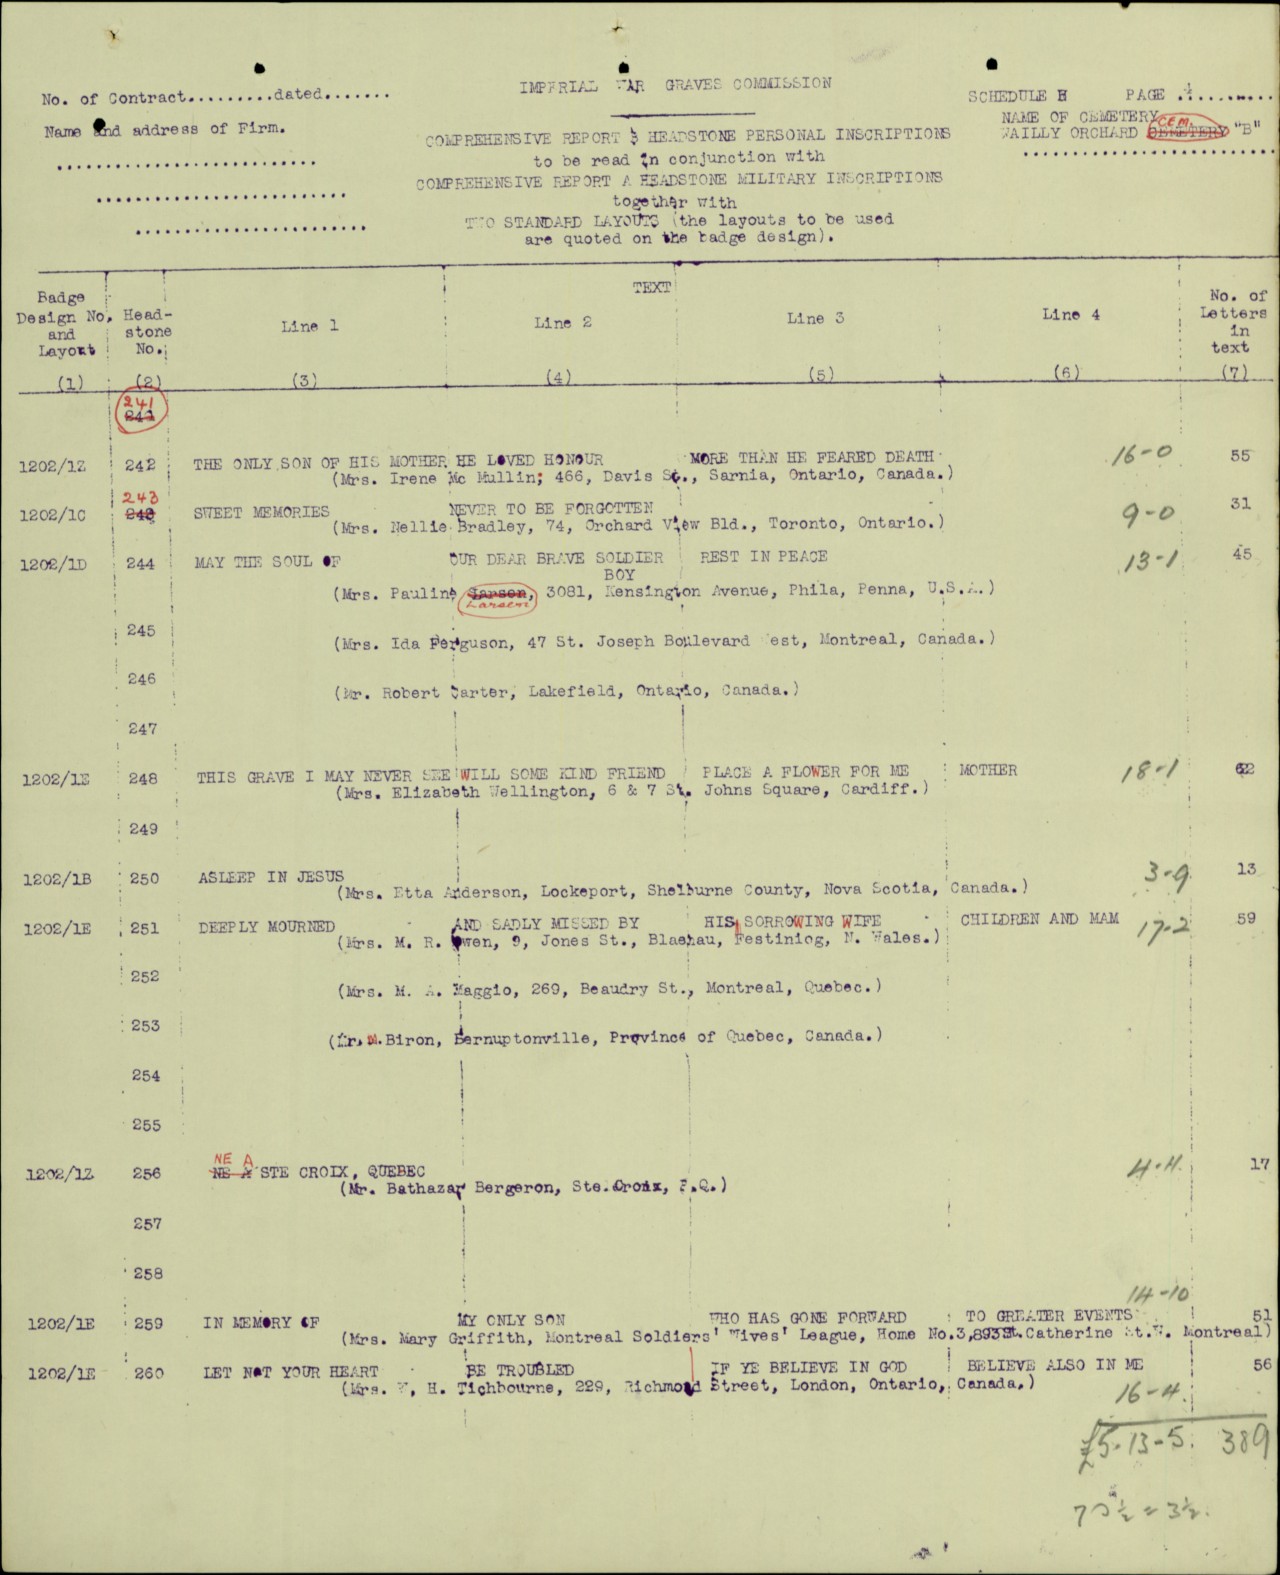 No. of Contract.........dated.......
Name and address of Firm.
IMPERIAL WAR GRAVES COMMISSION
COMPREHENSIVE REPORT B HEADSTONE PERSONAL INSCRIPTIONS
to be read in conjunction with
COMPREHENSIVE REPORT A HEADSTONE MILITARY INSCRIPTIONS
together with
TWO STANDARD LAYOUTS (the layouts to be used
are quoted on the badge design).
SCHEDULE B PAGE
NAME OF CEMETERY
WAILLY ORCHARD CEMETERY CEM. "B"
Badge Design No. and Layout
Head-stone No.
TEXT
Line 1 Line 2 Line 3 Line 4
No. of Letters in text
(1) (2) (3) (4) (5) (6) (7)
241
1202/1Z 242 THE ONLY SON OF HIS MOTHER HE LOVED HONOUR MORE THAN HE FEARED DEATH 16-0 55
(Mrs. Irene Mc Mullin; 466, Davis St., Sarnia, Ontario, Canada.)
243
1202/1C 243 SWEET MEMORIES NEVER TO BE FORGOTTEN 9-0 31
(Mrs. Nellie Bradley, 74, Orchard View Bld., Toronto, Ontario.)
1202/1D 244 MAY THE SOUL OF OUR DEAR BRAVE SOLDIER REST IN PEACE 13-1 45
BOY
(Mrs. Pauline Larsen, 3081, Kensington Avenue, Phila, Penna, U.S.A.)
Larsen
245
(Mrs. Ida Ferguson, 47 St. Joseph Boulevard West, Montreal, Canada.)
246
(Mr. Robert Carter, Lakefield, Ontario, Canada.)
247
1202/1E 248 THIS GRAVE I MAY NEVER SEE WILL SOME KIND FRIEND PLACE A FLOWER FOR ME MOTHER 18-1 62
(Mrs. Elizabeth Wellington, 6 & 7 St. Johns Square, Cardiff.)
249
1202/1B 250 ASLEEP IN JESUS 3-9 13
(Mrs. Etta Anderson, Lockeport, Shelburne County, Nova Scotia, Canada.)
1202/1E 251 DEEPLY MOURNED AND SADLY MISSED BY HIS SORROWING WIFE CHILDREN AND MAM 17-2 59
(Mrs. M. R. Owen, 9, Jones St., Blaenau, Festiniog, N. Wales.)
252
(Mrs. M. A. Maggio, 269, Beaudry St., Montreal, Quebec.)
253
(Mr. M. Biron, Bernuptonville, Province of Quebec, Canada.)
254
255
NE A
1202/1Z 256 NE A STE CROIX, QUEBEC 4-4 17
(Mr. Bathazar Bergeron, Ste.Croix, P.Q.)
257
258
14-10
1202/1E 259 IN MEMORY OF MY ONLY SON WHO HAS GONE FORWARD TO GREATER EVENTS 51
(Mrs. Mary Griffith, Montreal Soldiers' Wives' League, Home No.3,893St.Catherine St.W. Montreal)
1202/1E 260 LET NOT YOUR HEART BE TROUBLED IF YE BELIEVE IN GOD BELIEVE ALSO IN ME 56
(Mrs. W. H. Tichbourne, 229, Richmond Street, London, Ontario, Canada.)
16-4
£5-13-5. 389